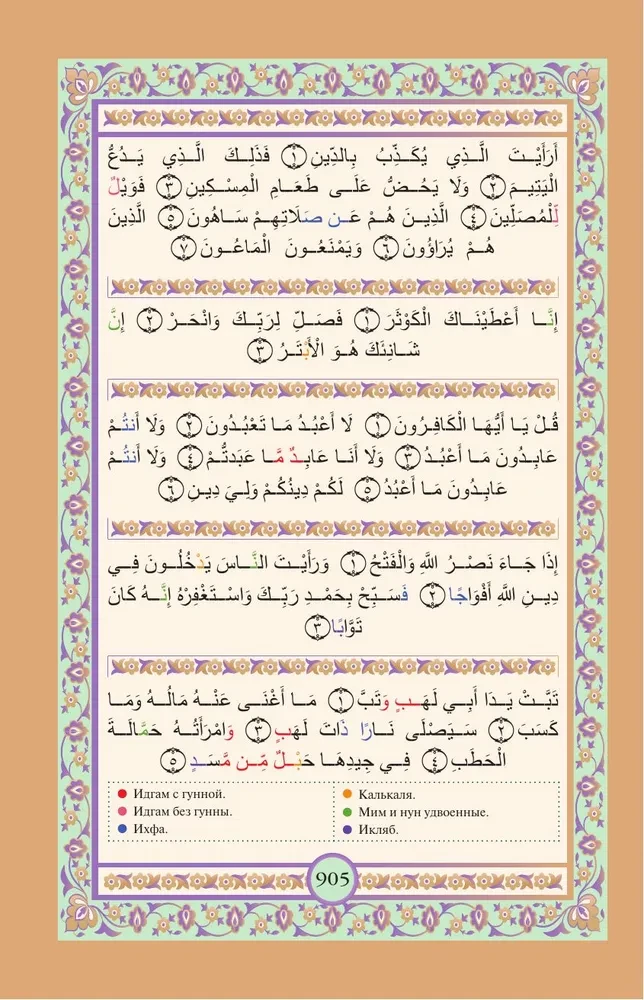 أَرَأَيْتَ الَّذِي يُكَذِّبُ بِالدِّينِ ١ فَذَلِكَ الَّذِي يَدُعُّ
الْيَتِيمَ ٢ وَلَا يَحُضُّ عَلَى طَعَامِ الْمِسْكِينِ ٣ فَوَيْلٌ
لِّلْمُصَلِّينَ ٤ الَّذِينَ هُمْ عَن صَلَاتِهِمْ سَاهُونَ ٥ الَّذِينَ
هُمْ يُرَاؤُونَ ٦ وَيَمْنَعُونَ الْمَاعُونَ ٧
إِنَّا أَعْطَيْنَاكَ الْكَوْثَرَ ١ فَصَلِّ لِرَبِّكَ وَانْحَرْ ٢ إِنَّ
شَانِئَكَ هُوَ الْأَبْتَرُ ٣
قُلْ يَا أَيُّهَا الْكَافِرُونَ ١ لَا أَعْبُدُ مَا تَعْبُدُونَ ٢ وَلَا أَنتُمْ
عَابِدُونَ مَا أَعْبُدُ ٣ وَلَا أَنَا عَابِدٌ مَّا عَبَدتُّمْ ٤ وَلَا أَنتُمْ
عَابِدُونَ مَا أَعْبُدُ ٥ لَكُمْ دِينُكُمْ وَلِيَ دِينِ ٦
إِذَا جَاءَ نَصْرُ اللَّهِ وَالْفَتْحُ ١ وَرَأَيْتَ النَّاسَ يَدْخُلُونَ فِي
دِينِ اللَّهِ أَفْوَاجًا ٢ فَسَبِّحْ بِحَمْدِ رَبِّكَ وَاسْتَغْفِرْهُ إِنَّهُ كَانَ
تَوَّابًا ٣
تَبَّتْ يَدَا أَبِي لَهَبٍ وَتَبَّ ١ مَا أَغْنَى عَنْهُ مَالُهُ وَمَا
كَسَبَ ٢ سَيَصْلَى نَارًا ذَاتَ لَهَبٍ ٣ وَامْرَأَتُهُ حَمَّالَةَ
الْحَطَبِ ٤ فِي جِيدِهَا حَبْلٌ مِّن مَّسَدٍ ٥
Идгам с гунной.
Идгам без гунны.
Ихфа.
Калькаля.
Мим и нун удвоенные.
Икляб.
905